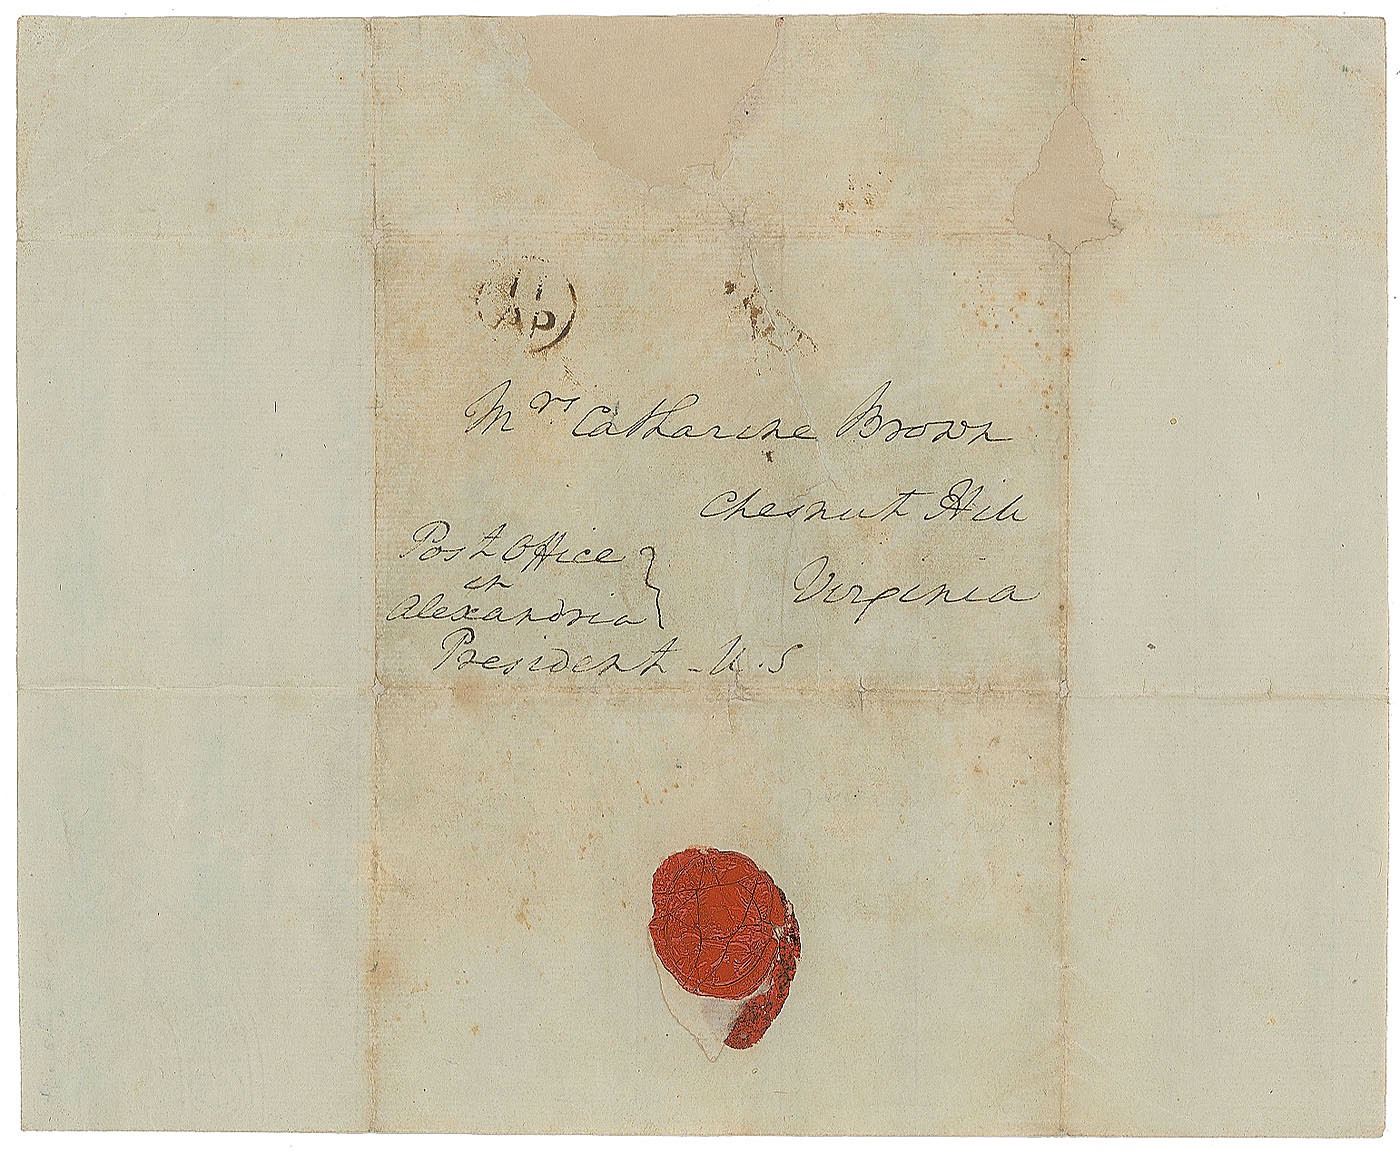 11
AP
Mrs Catharine Brown
Chesnut Hill
Post Office
in
Alexandria
Virginia
President - U.S